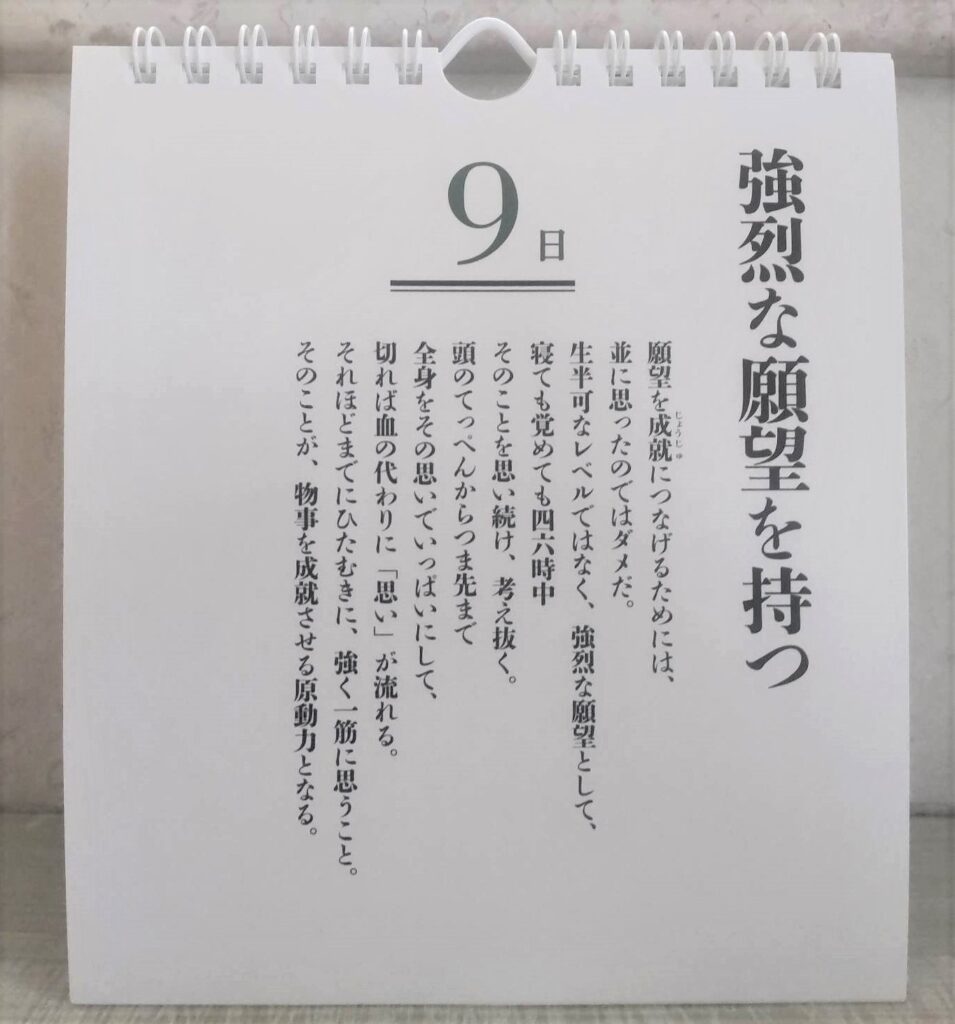 強烈な願望を持つ
9日
願望を成就につなげるためには、
じょうじゅ
並に思ったのではダメだ。
生半可なレベルではなく、強烈な願望として、
寝ても覚めても四六時中
そのことを思い続け、考え抜く。
頭のてっぺんからつま先まで
全身をその思いでいっぱいにして、
切れば血の代わりに「思い」が流れる。
それほどまでにひたむきに、強く一筋に思うこと。
そのことが、物事を成就させる原動力となる。